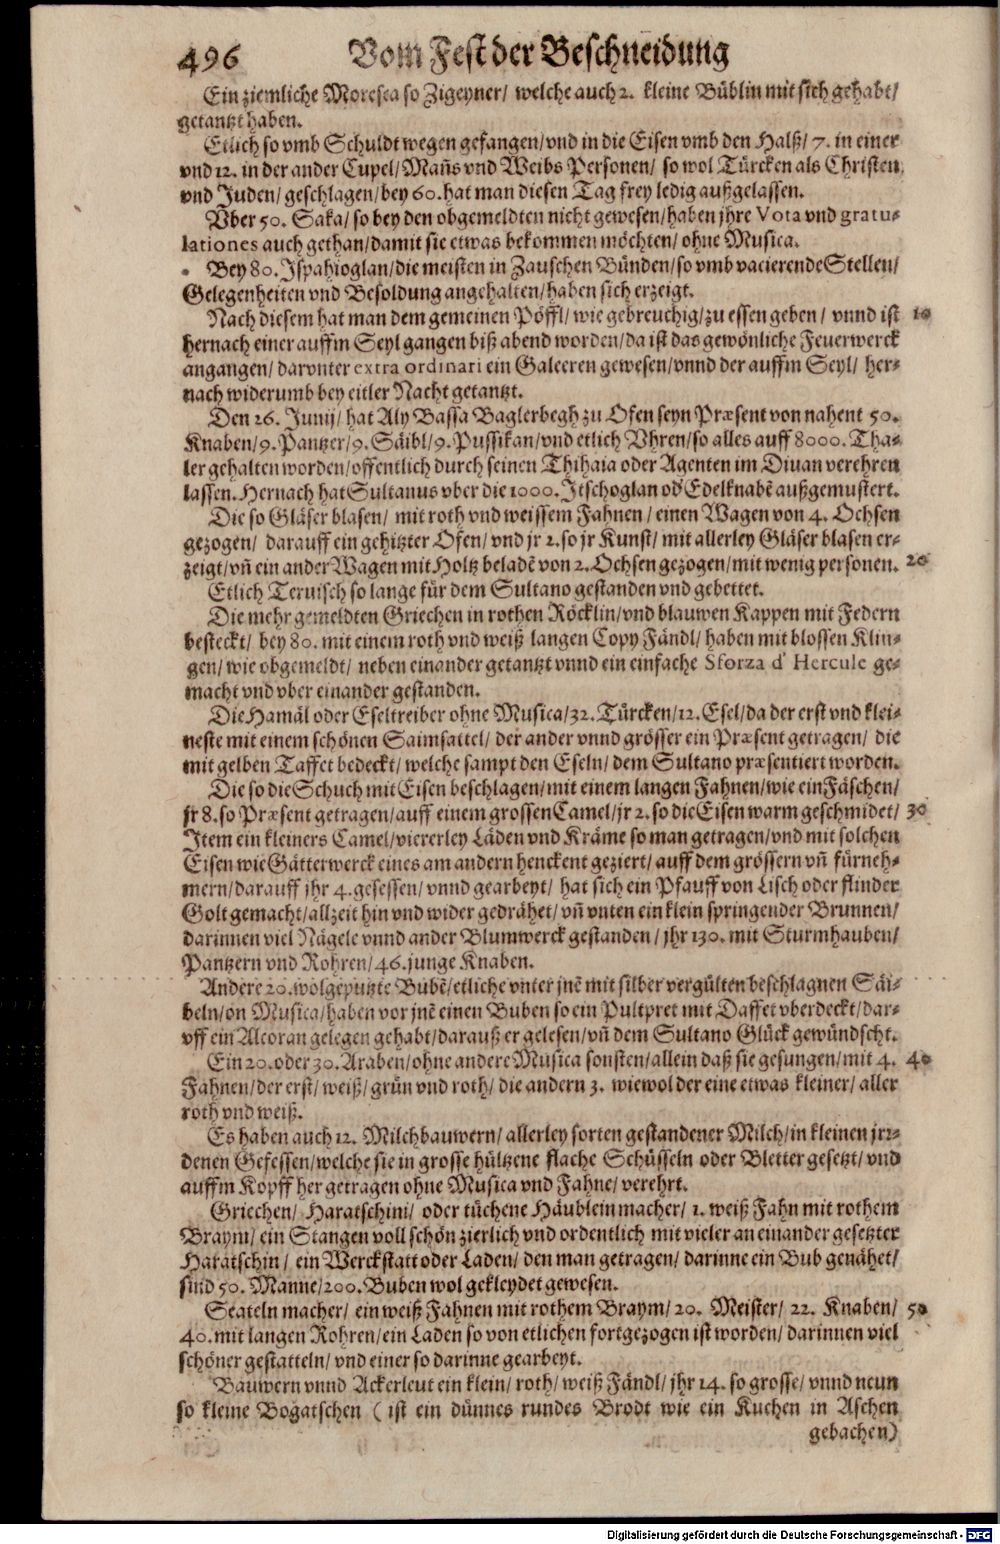 496 Vom Fest der Beschneidung
Ein ziemliche Moresca so Zigeyner/ welche auch 2. kleine Büblin mit sich gehabt/
getantzt haben.
Etlich so vmb Schuldt wegen gefangen/vnd in die Eisen vmb den Halß/ 7. in einer
vnd 12. in der ander Cupel/Mañs vnd Weibs Personen/ so wol Türcken als Christen
vnd Juden/ geschlagen/bey 60. hat man diesen Tag frey ledig außgelassen.
Vber 50. Saka/ so bey den obgemeldten nicht gewesen/haben jhre Vota vnd gratu-
lationes auch gethan/damit sie etwas bekommen möchten/ ohne Musica.
Bey 80. Ispahioglan/die meisten in Zauschen Bünden/so vmb vacierende Stellen/
Gelegenheiten vnd Besoldung angehalten/haben sich erzeigt.
Nach diesem hat man dem gemeinen Pöffl/ wie gebreuchig/zu essen geben/ vnnd ist 10
hernach einer auffm Seyl gangen biß abend worden/da ist das gewönliche Feuerwerck
angangen/ darvnter extra ordinari ein Galeeren gewesen/vnnd der auffm Seyl/ her-
nach widerumb bey eitler Nacht getantzt.
Den 26. Junij/ hat Aly Bassa Baglerbegh zu Ofen seyn Præsent von nahent 50.
Knaben/9. Pantzer/9. Säibl/9. Pussikan/vnd etlich Vhren/so alles auff 8000. Tha-
ler gehalten worden/offentlich durch seinen Thihaia oder Agenten im Diuan verehren
lassen. Hernach hat Sultanus vber die 1000. Itschoglan od' Edelknabē außgemustert.
Die so Gläser blasen/ mit roth vnd weissem Fahnen/ einen Wagen von 4. Ochsen
gezogen/ darauff ein gehitzter Ofen/ vnd jr 2. so jr Kunst/ mit allerley Gläser blasen er-
zeigt/vñ ein ander Wagen mit Holtz beladē von 2. Ochsen gezogen/mit wenig personen. 20
Etlich Teruisch so lange für dem Sultano gestanden vnd gebettet.
Die mehr gemeldten Griechen in rothen Röcklin/vnd blauwen Kappen mit Federn
besteckt/ bey 80. mit einem roth vnd weiß langen Copy Fändl/ haben mit blossen Klin-
gen/ wie obgemeldt/ neben einander getantzt vnnd ein einfache Sforza d' Hercule ge-
macht vnd vber einander gestanden.
Die Hamäl oder Eseltreiber ohne Musica/32. Türcken/12. Esel/da der erst vnd klei-
neste mit einem schönen Saimsattel/ der ander vnnd grösser ein Præsent getragen/ die
mit gelben Taffet bedeckt/ welche sampt den Eseln/ dem Sultano præsentiert worden.
Die so die Schuch mit Eisen beschlagen/mit einem langen Fahnen/wie ein Fäschen/
jr 8. so Præsent getragen/auff einem grossen Camel/jr 2. so die Eisen warm geschmidet/ 30
Item ein kleiners Camel/viererley Läden vnd Kräme so man getragen/vnd mit solchen
Eisen wie Gätterwerck eines am andern henckent geziert/ auff dem grössern vñ fürneh-
mern/darauff jhr 4. gesessen/ vnnd gearbeyt/ hat sich ein Pfauff von Lisch oder flinder
Golt gemacht/allzeit hin vnd wider gedrähet/vñ vnten ein klein springender Brunnen/
darinnen viel Nägele vnnd ander Blumwerck gestanden/ jhr 130. mit Sturmhauben/
Pantzern vnd Rohren/46. junge Knaben.
Andere 20. wolgeputzte Bubē/etliche vnter jnē mit silber vergülten beschlagnen Säi-
beln/on Musica/haben vor jnē einen Buben so ein Pultpret mit Daffet vberdeckt/dar-
vff ein Alcoran gelegen gehabt/darauß er gelesen/vñ dem Sultano Glück gewündscht.
Ein 20. oder 30. Araben/ohne andere Musica sonsten/allein daß sie gesungen/mit 4. 40
Fahnen/der erst/ weiß/ grün vnd roth/ die andern 3. wiewol der eine etwas kleiner/ aller
roth vnd weiß.
Es haben auch 12. Milchbauwern/ allerley sorten gestandener Milch/in kleinen jrr-
denen Gefessen/welche sie in grosse hültzene flache Schüsseln oder Bletter gesetzt/ vnd
auffm Kopff her getragen ohne Musica vnd Fahne/ verehrt.
Griechen/ Haratschini/ oder tüchene Häublein macher/ 1. weiß Fahn mit rothem
Braym/ ein Stangen voll schön zierlich vnd ordentlich mit vieler an einander gesetzter
Haratschin/ ein Werckstatt oder Laden/ den man getragen/ darinne ein Bub genähet/
sind 50. Manne/200. Buben wol gekleydet gewesen.
Scateln macher/ ein weiß Fahnen mit rothem Braym/ 20. Meister/ 22. Knaben/ 50
40. mit langen Rohren/ein Laden so von etlichen fortgezogen ist worden/ darinnen viel
schöner gestatteln/ vnd einer so darinne gearbeyt.
Bauwern vnnd Ackerleut ein klein/ roth/ weiß Fändl/ jhr 14. so grosse/ vnnd neun
so kleine Bogatschen ( ist ein dünnes rundes Brodt wie ein Kuchen in Aschen
gebachen)
Digitalisierung gefördert durch die Deutsche Forschungsgemeinschaft - DFG